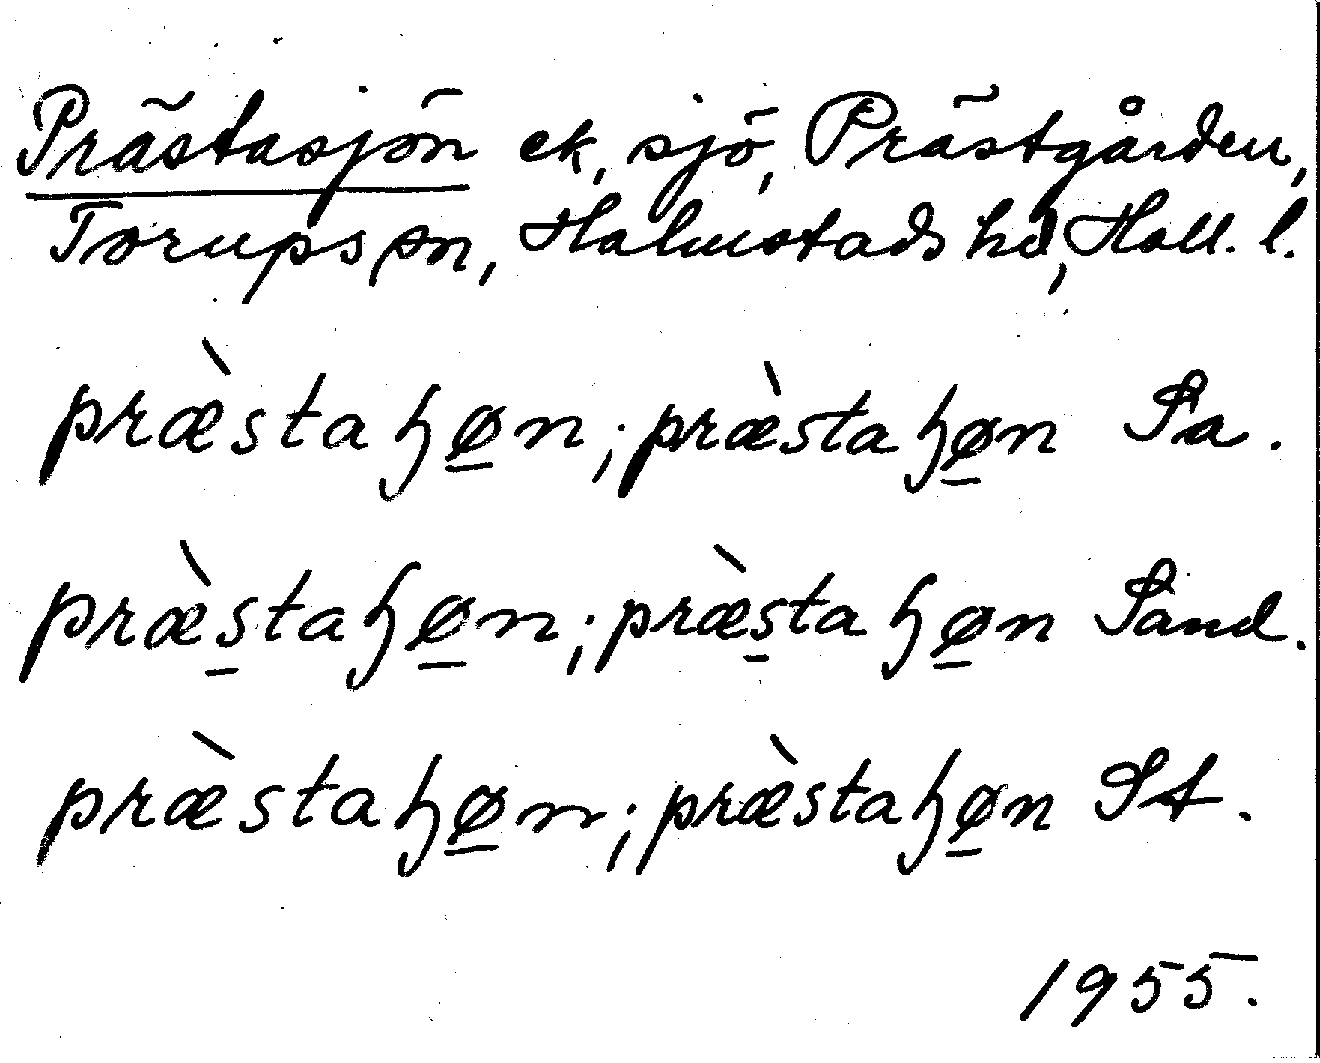 Prästasjön ek, sjö, Prästgården,
Torups sn, Halmstads hd, Hall. l.
præ̀staɧø̲n; præ̀staɧø̲n Pa.
præ̀s̲taɧø̲n; præ̀s̲taɧø̲n Sand.
præ̀staɧø̲n; præ̀staɧø̲n St.
1955.